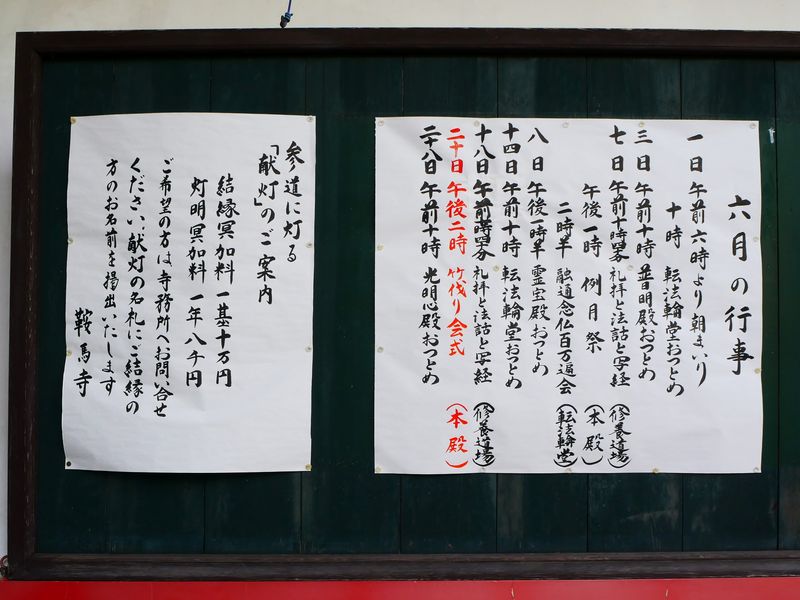 六月の行事
一日 午前六時より朝まいり
十時 転法輪堂おつとめ
三日 午前十時 普明殿おつとめ
七日 午前十時四五分 礼拝と法話と写経 (修養道場)
午後一時 例月祭 (本殿)
二時半 融通念仏百万遍会 (転法輪堂)
八日 午後一時半 霊宝殿おつとめ
十四日 午前十時 転法輪堂おつとめ
十八日 午前十時四五分 礼拝と法話と写経 (修養道場)
二十日 午後二時 竹伐り会式 (本殿)
二十八日 午前十時 光明心殿おつとめ
参道に灯る
「献灯」のご案内
結縁冥加料 一基十万円
灯明冥加料 一年八千円
ご希望の方は寺務所へお問い合せ
ください。献灯の名札にご結縁の
方のお名前を掲出いたします
鞍馬寺